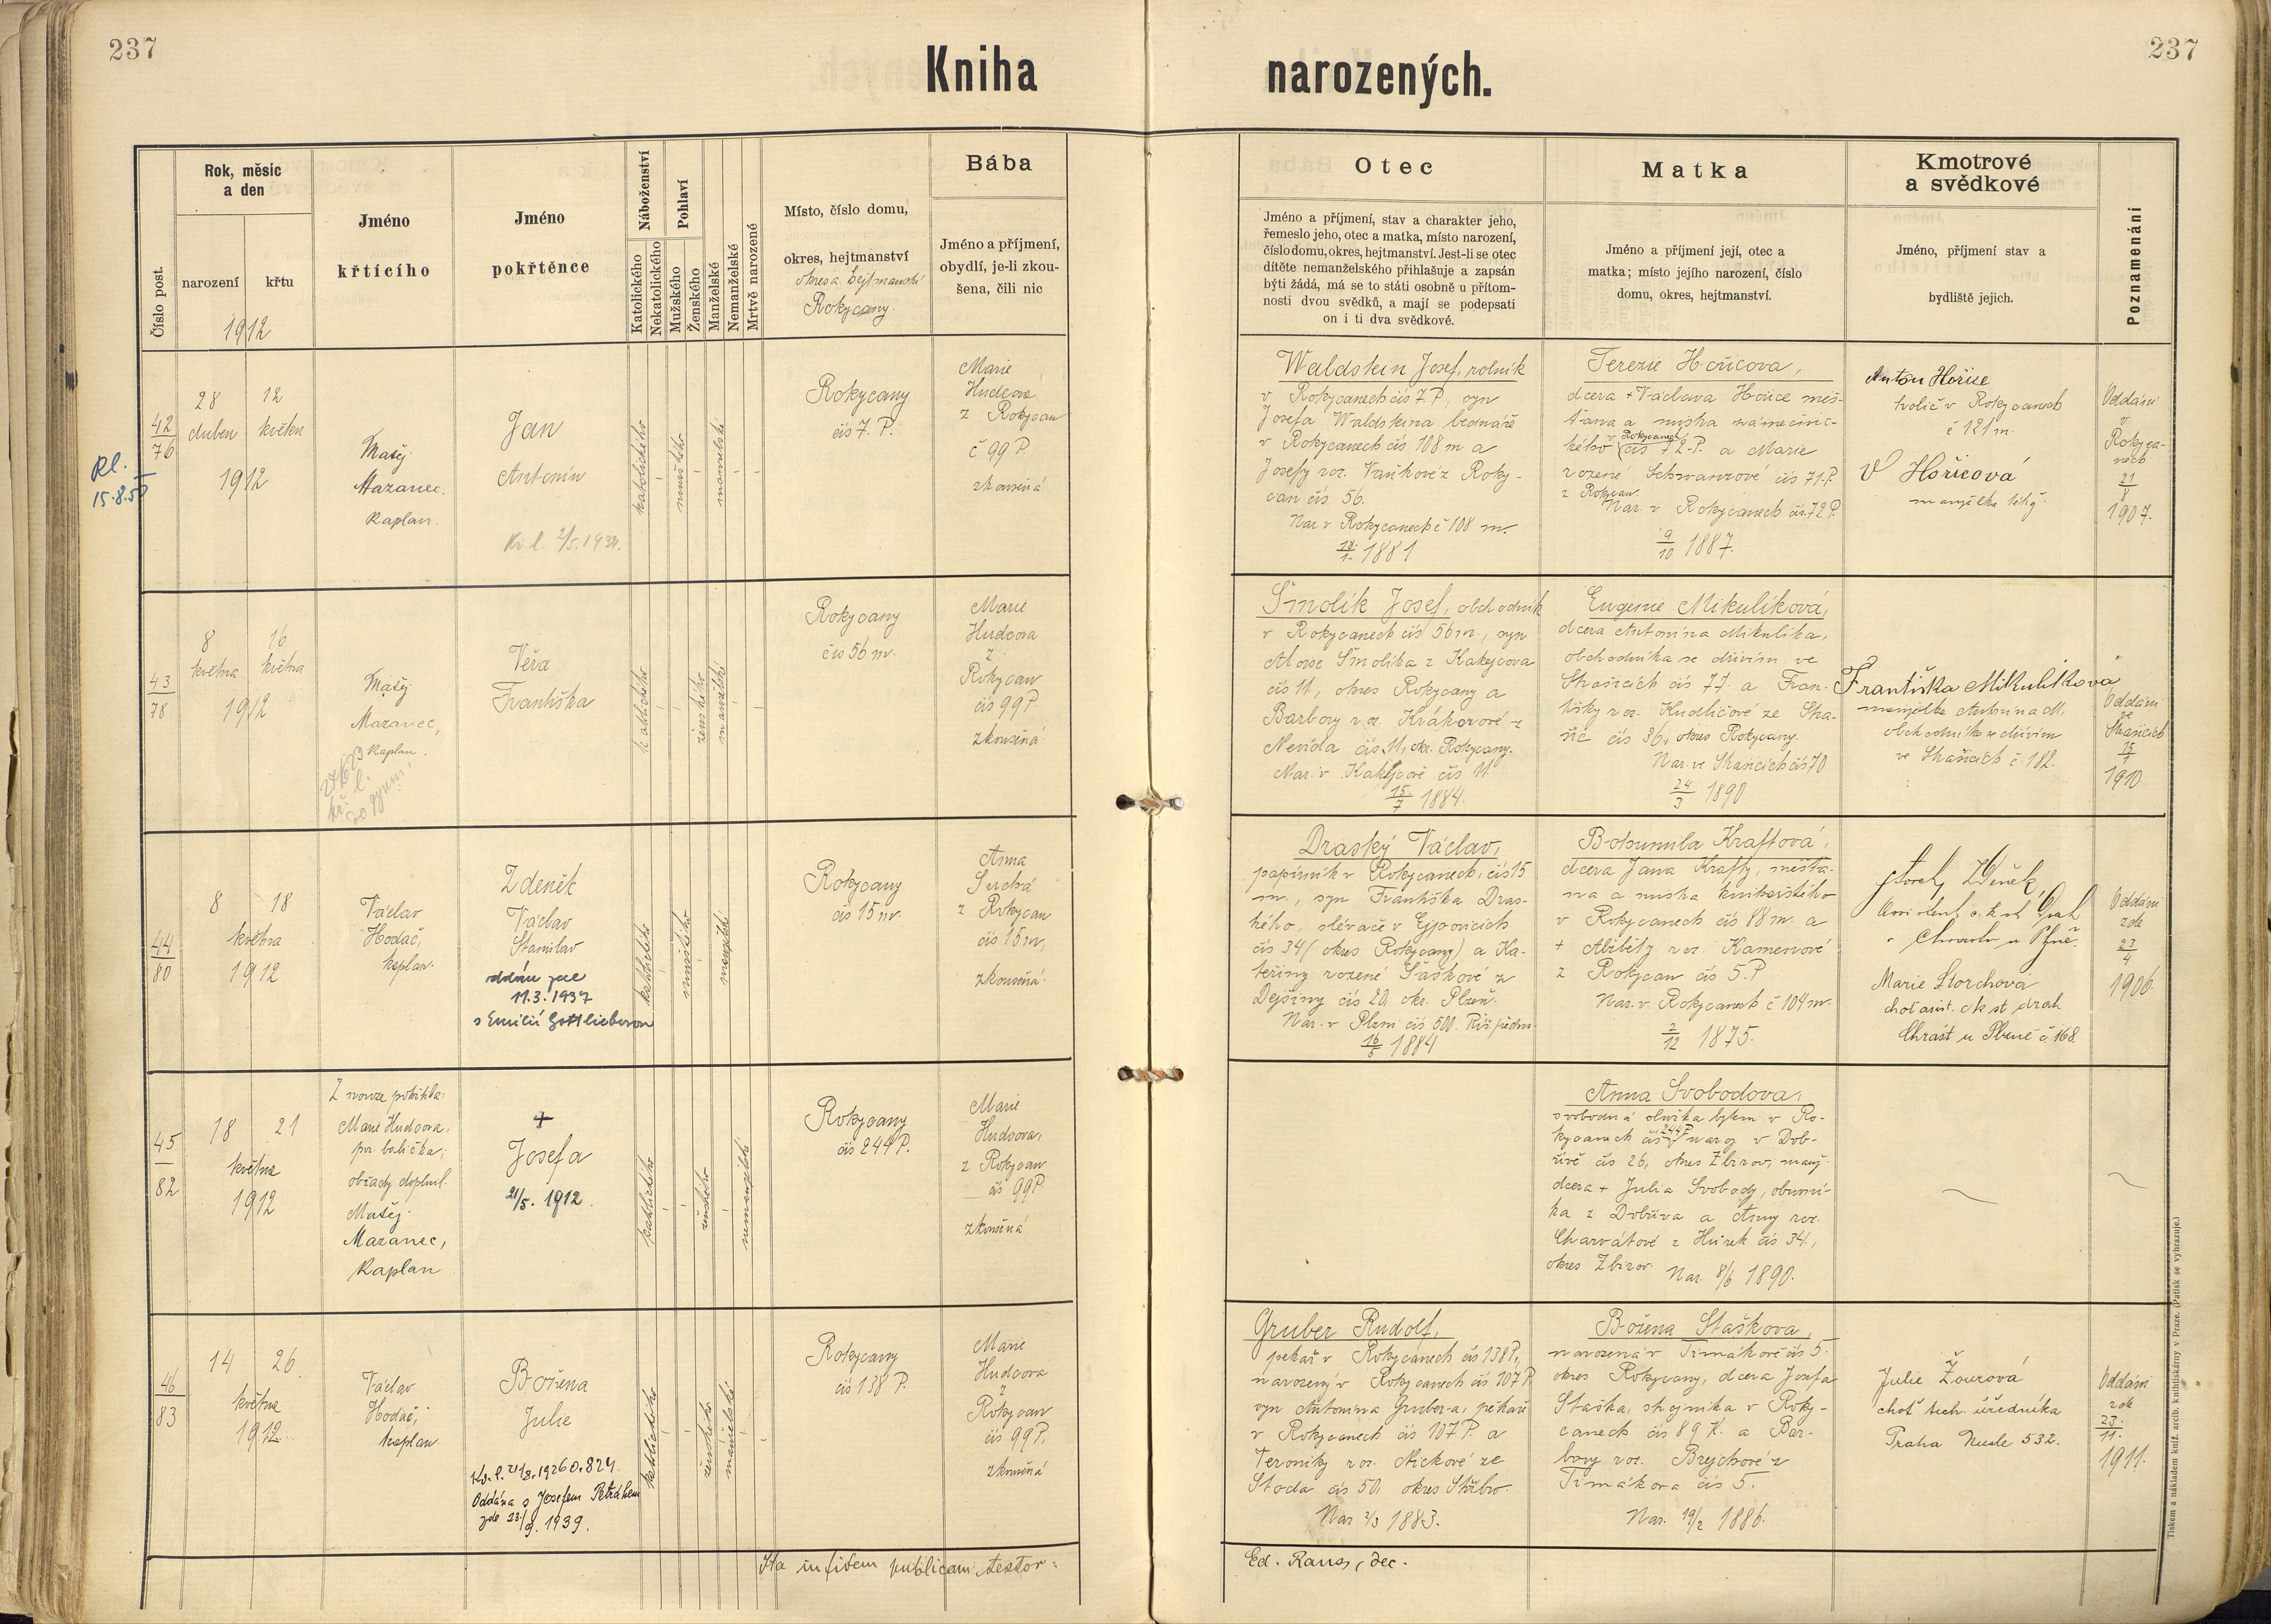 237
Kniha narozených.
237
Číslo post.
Rok, měsíc a den
narození
křtu
1912
Jméno křtícího
Jméno pokřtěnce
Náboženství
Katolického
Nekatolického
Pohlaví
Mužského
Ženského
Manželské
Nemanželské
Mrtvě narozené
Místo, číslo domu,
okres, hejtmanství
okres a hejtmanství
Rokycany.
Bába
Jméno a příjmení,
obydlí, je-li zkou-
šena, čili nic
Otec
Jméno a příjmení, stav a charakter jeho,
řemeslo jeho, otec a matka, místo narození,
číslo domu, okres, hejtmanství. Jest-li se otec
dítěte nemanželského přihlašuje a zapsán
býti žádá, má se to státi osobně u přítom-
nosti dvou svědků, a mají se podepsati
on i ti dva svědkové.
Matka
Jméno a příjmení její, otec a
matka; místo jejího narození, číslo
domu, okres, hejtmanství.
Kmotrové
a svědkové
Jméno, příjmení stav a
bydliště jejich.
Poznamenání
42
76
15.8.
28 12
duben květen
1912
Matěj
Mazanec,
Kaplan.
Jan
Antonín
katolického
mužského
manželské
Rokycany
čís 7. P.
Marie
Hudcová
z Rokycan
č 99 P.
zkoušená
Waldstein Josef, rolník
v Rokycanech čís 7 P., syn
Josefa Waldsteina bednáře
v Rokycanech čís 108 m a
Josefy roz. Vaňkové z Roky-
can čís 56.
Nar. v Rokycanech č 108 m.
1881
Terezie Hořicova,
dcera + Václava Hořice měš-
ťana a mistra zámečnic-
kého v Rokycanech čís 72 P. a Marie
rozené Schwarzové čís 71. P.
z Rokycan.
Nar. v Rokycanech čís. 72 P.
9/10 1887.
Anton Hořice
holič v Rokycanech
č 121 m.
Hořicová
manželka téhož
Oddáni
v
Rokyca-
nech
21
8
1907.
43
78
8 16
května května
1912
Matěj
Mazanec,
Kaplan.
Věra
Františka
katolického
ženského
manželské
Rokycany
čís 56 m.
Marie
Hudcova
z
Rokycan
čís 99 P.
zkoušená
Šmolík Josef, obchodník
v Rokycanech čís 56 m., syn
Aloise Šmolíka z Kakejcova
čís 11, okres Rokycany a
Barbory roz. Krákorové z
Nevida čís 11, okr. Rokycany.
Nar. v Kakejcově čís 11
15/7 1884.
Eugenie Mikulíková,
dcera Antonína Mikulíka,
obchodníka se dřívím ve
Strašicích čís 77. a Fran-
tišky roz. Kudličové ze Stra-
šic čís 36, okres Rokycany.
Nar. ve Strašicích čís 70
24/3 1890
Františka Mikulíkova
manželka Antonína M.
obchodníka se dřívím
ve Strašicích č. 182.
Oddáni
ve
Strašicích
15
1
1910
44
80
8 18
května
1912
Václav
Hodač,
kaplan.
Zdeněk
Václav
Stanislav
oddán zde
11.3.1937
s Emilií Gottlieberou
katolického
mužského
manželské
Rokycany
čís 15 m.
Anna
Suchá
z Rokycan
čís 15 m,
zkoušená
Draský Václav,
papírník v Rokycanech, čís 15
m., syn Františka Dras-
kého, slévače v Ejpovicích
čís 34 (okres Rokycany) a Ka-
teřiny rozené Šaškové z
Dejšiny čís 20. okr. Plzeň.
Nar. v Plzni čís 500. Říš. předm.
16/5 1884
Bohumila Kraftová,
dcera Jana Krafty, měšťa-
na a mistra knihařského
v Rokycanech čís 88 m. a
+ Alžběty roz. Kamenové
z Rokycan čís 5. P
Nar. v Rokycanech č 104 m.
2/12 1875.
Storch Zdeněk,
Marie Storchová
choť asist. ck st drah
Chrást u Plzně č. 168.
Oddáni
zde
23
4
1906.
45
82
18 21
května
1912
Z nouze pokřtila:
Marie Hudcova,
por. babička,
obřady doplnil
Matěj
Mazanec,
Kaplan
+
Josefa
21/5. 1912
katolického
ženského
nemanželské
Rokycany
čís 244 P.
Marie
Hudcova,
z Rokycan
čís 99 P.
zkoušená
Anna Svobodova,
svobodná služka bytem v Ro-
kycanech čís 244 P naroz v Dob-
řívě čís 26, okres Zbirov, manž.
dcera + Julia Svobody, obuvní-
ka z Dobříva a Anny roz.
Charvátové z Hůrek čís 34,
okres Zbirov Nar. 8/6 1890.
46
83
14 26
května
1912
Václav
Hodač,
kaplan
Božena
Julie
Oddána s Josefem Petrákem
zde 23/9. 1939.
katolického
ženského
manželské
Rokycany
čís 138 P.
Marie
Hudcova
z
Rokycan
čís 99 P.
zkoušená
Gruber Rudolf,
pekař v Rokycanech čís 138 P.,
narozený v Rokycanech čís 107 P.
syn Antonína Grubera, pekaře
v Rokycanech čís 107 P. a
Veroniky roz. Nickové ze
Stoda čís 50. okres Stříbro.
Nar 2/3 1883.
Božena Staškova,
narozená v Timákově čís 5.
okres Rokycany, dcera Josefa
Staška, strojníka v Roky-
canech čís 89 K. a Bar-
bory roz. Brejchové z
Timákova čís 5.
Nar. 19/2 1886.
Julie Žourová
choť tech. úředníka
Praha Nusle 532.
Oddáni
zde
23.
11.
1911.
Ita in fidem publicam testor:
Ed. Raus, dec.
Tiskem a nákladem kníž. arcib. knihtiskárny v Praze. (Patisk se vyhrazuje.)